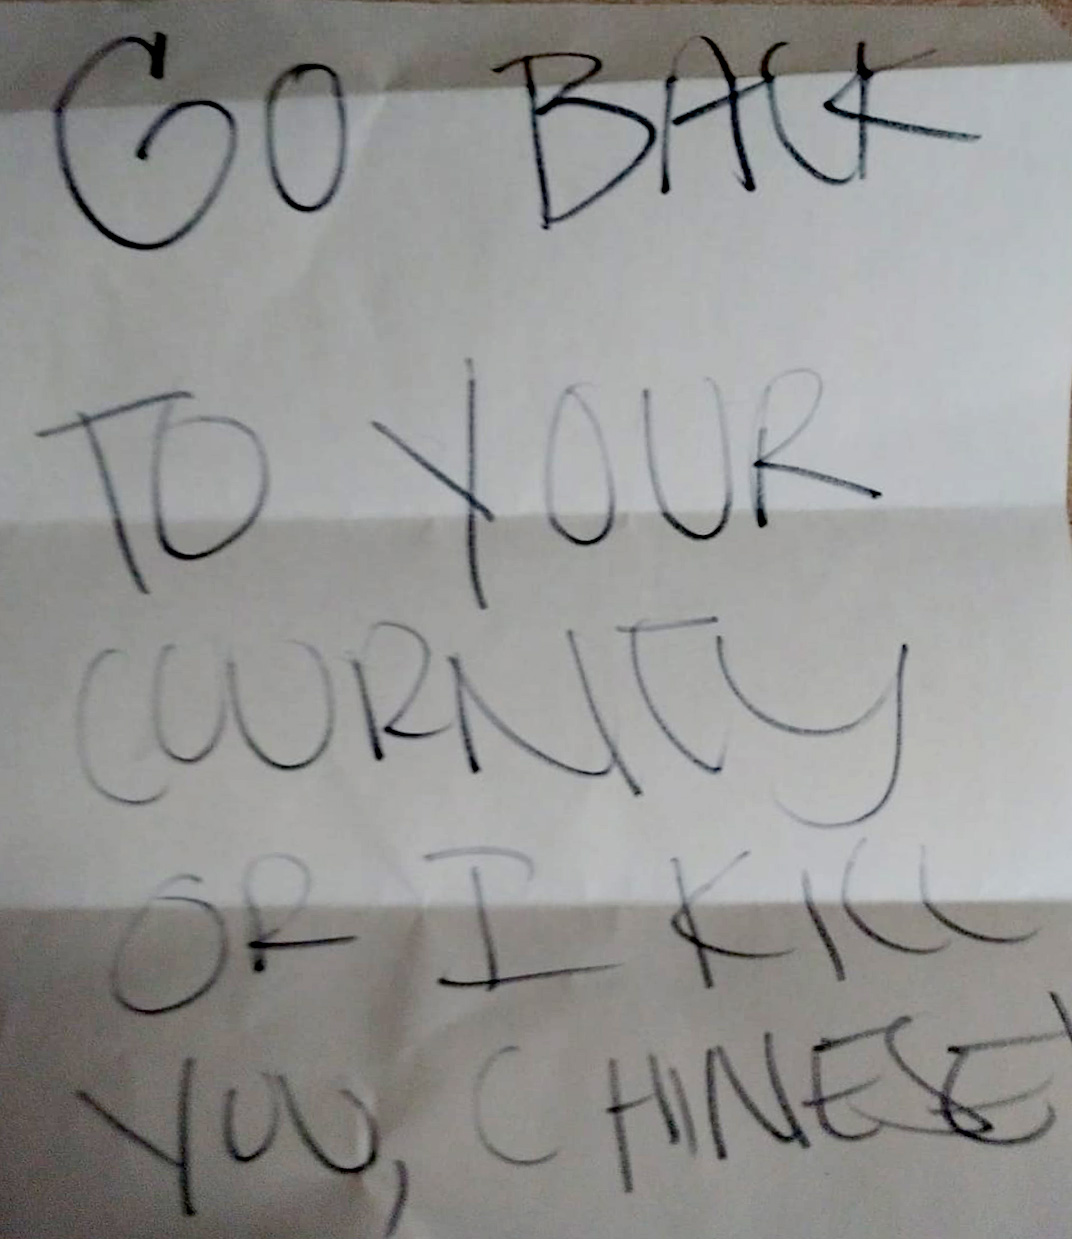 GO BACK
TO YOUR
COURNTY
OR I KILL
YOU, CHINESE